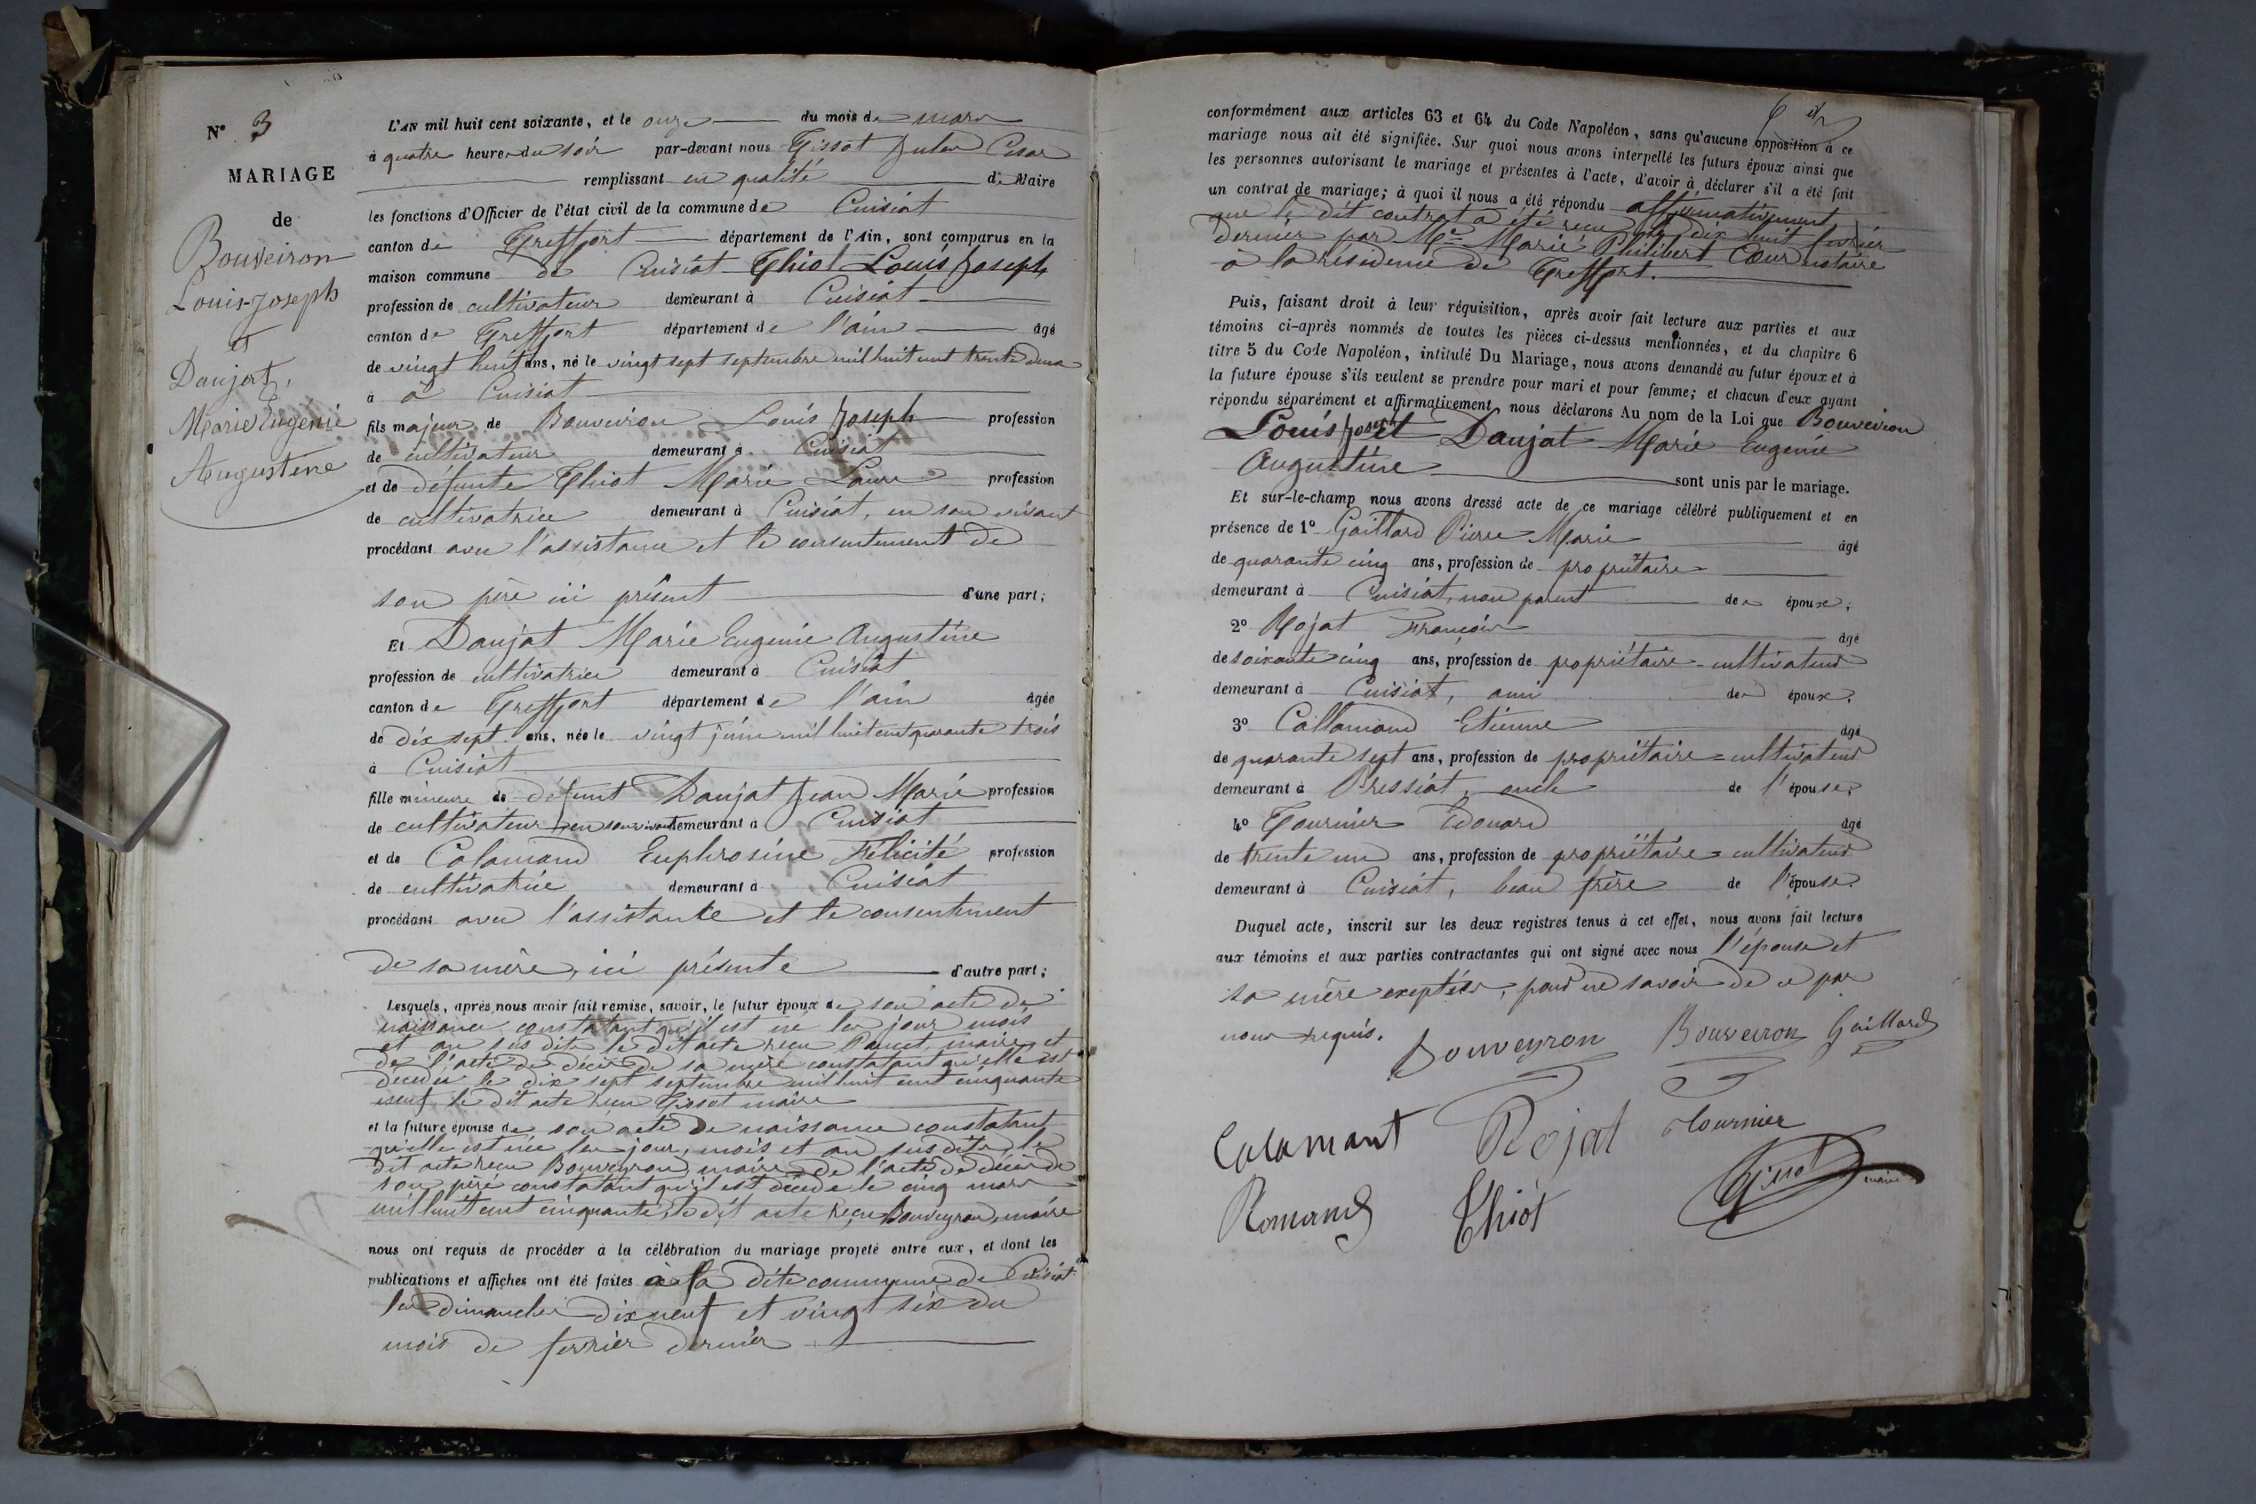 N° 3
MARIAGE
de
Bouveiron
Louis-Joseph
et
Daujat,
Marie Eugénie
Augustine
L'AN mil huit cent soixante, et le onze du mois de mars
à quatre heures du soir par-devant nous Tissot Jules Cesar
remplissant en qualité de Maire
les fonctions d'Officier de l'état civil de la commune de Cuisiat
canton de Treffort département de l'Ain, sont comparus en la
maison commune de Cuisiat Thiot Louis Joseph
profession de cultivateur demeurant à Cuisiat
canton de Treffort département de l'ain âgé
de vingt huit ans, né le vingt sept septembre mil huit cent trente deux
à à Cuisiat
fils majeur de Bouveiron Louis Joseph profession
de cultivateur demeurant à Cuisiat
et de défunte Thiot Marie Laure profession
de cultivatrice demeurant à Cuisiat, en son vivant
procédant avec l'assistance et le consentement de
son père ici présent d'une part;
Et Daujat Marie Eugenie Augustine
profession de cultivatrice demeurant à Cuisiat
canton de Treffort département de l'ain âgée
de dix sept ans, née le vingt juin mil huit cent quarante trois
à Cuisiat
fille mineure de défunt Daujat Jean Marie profession
de cultivateur en son vivant demeurant à Cuisiat
et de Calamand Euphrosine Félicité profession
de cultivatrice demeurant à Cuisiat
procédant avec l'assistance et le consentement
de sa mère, ici présente d'autre part;
Lesquels, après nous avoir fait remise, savoir, le futur époux de son acte de
naissance constatant qu'il est né les jour mois
et an sus dits le dit acte reçu maire, et
de l'acte de décès de sa mère constatant qu'elle est
décédée le dix sept septembre mil huit cent cinquante
neuf le dit acte reçu Tissot maire
et la future épouse de son acte de naissance constatant
qu'elle est née les jour, mois et an sus dits, le
dit acte reçu Bouveyron, maire, de l'acte de décès de
son père constatant qu'il est décédé le cinq mars
mil huit cent cinquante, le dit acte reçu Bouveyron, maire
nous ont requis de procéder à la célébration du mariage projeté entre eux, et dont les
publications et affiches ont été faites à la dite commune de Cuisiat
les dimanches dix neuf et vingt six du
mois de fevrier dernier
6
conformément aux articles 63 et 64 du Code Napoléon, sans qu'aucune opposition à ce
mariage nous ait été signifiée. Sur quoi nous avons interpellé les futurs époux ainsi que
les personnes autorisant le mariage et présentes à l'acte, d'avoir à déclarer s'il a été fait
un contrat de mariage; à quoi il nous a été répondu affirmativement
que le dit contrat a été reçu le dix huit fevrier
dernier par Me Marie Philibert Cœur notaire
à la résidence de Treffort.
Puis, faisant droit à leur réquisition, après avoir fait lecture aux parties et aux
témoins ci-après nommés de toutes les pièces ci-dessus mentionnées, et du chapitre 6
titre 5 du Code Napoléon, intitulé Du Mariage, nous avons demandé au futur époux et à
la future épouse s'ils veulent se prendre pour mari et pour femme; et chacun d'eux ayant
répondu séparément et affirmativement, nous déclarons Au nom de la Loi que Bouveiron
Louis Joseph et Daujat Marie Eugénie
Augustine sont unis par le mariage.
Et sur-le-champ nous avons dressé acte de ce mariage célébré publiquement et en
présence de 1° Gaillard Pierre Marie âgé
de quarante cinq ans, profession de propriétaire
demeurant à Cuisiat, non parent des époux;
2° Rojat François âgé
de soixante cinq ans, profession de propriétaire-cultivateur
demeurant à Cuisiat, ami des époux;
3° Callamand Etienne âgé
de quarante sept ans, profession de propriétaire-cultivateur
demeurant à Pressiat, oncle de l'épouse;
4° Tournier Edouard âgé
de trente un ans, profession de propriétaire-cultivateur
demeurant à Cuisiat, beau frère de l'épouse.
Duquel acte, inscrit sur les deux registres tenus à cet effet, nous avons fait lecture
aux témoins et aux parties contractantes qui ont signé avec nous l'épouse et
sa mère exceptées, pour ne savoir de ce par
nous requis.
Bouveyron Bouveiron Gaillard
Calamant Rojat Tournier
Romand Thiot Tissot maire